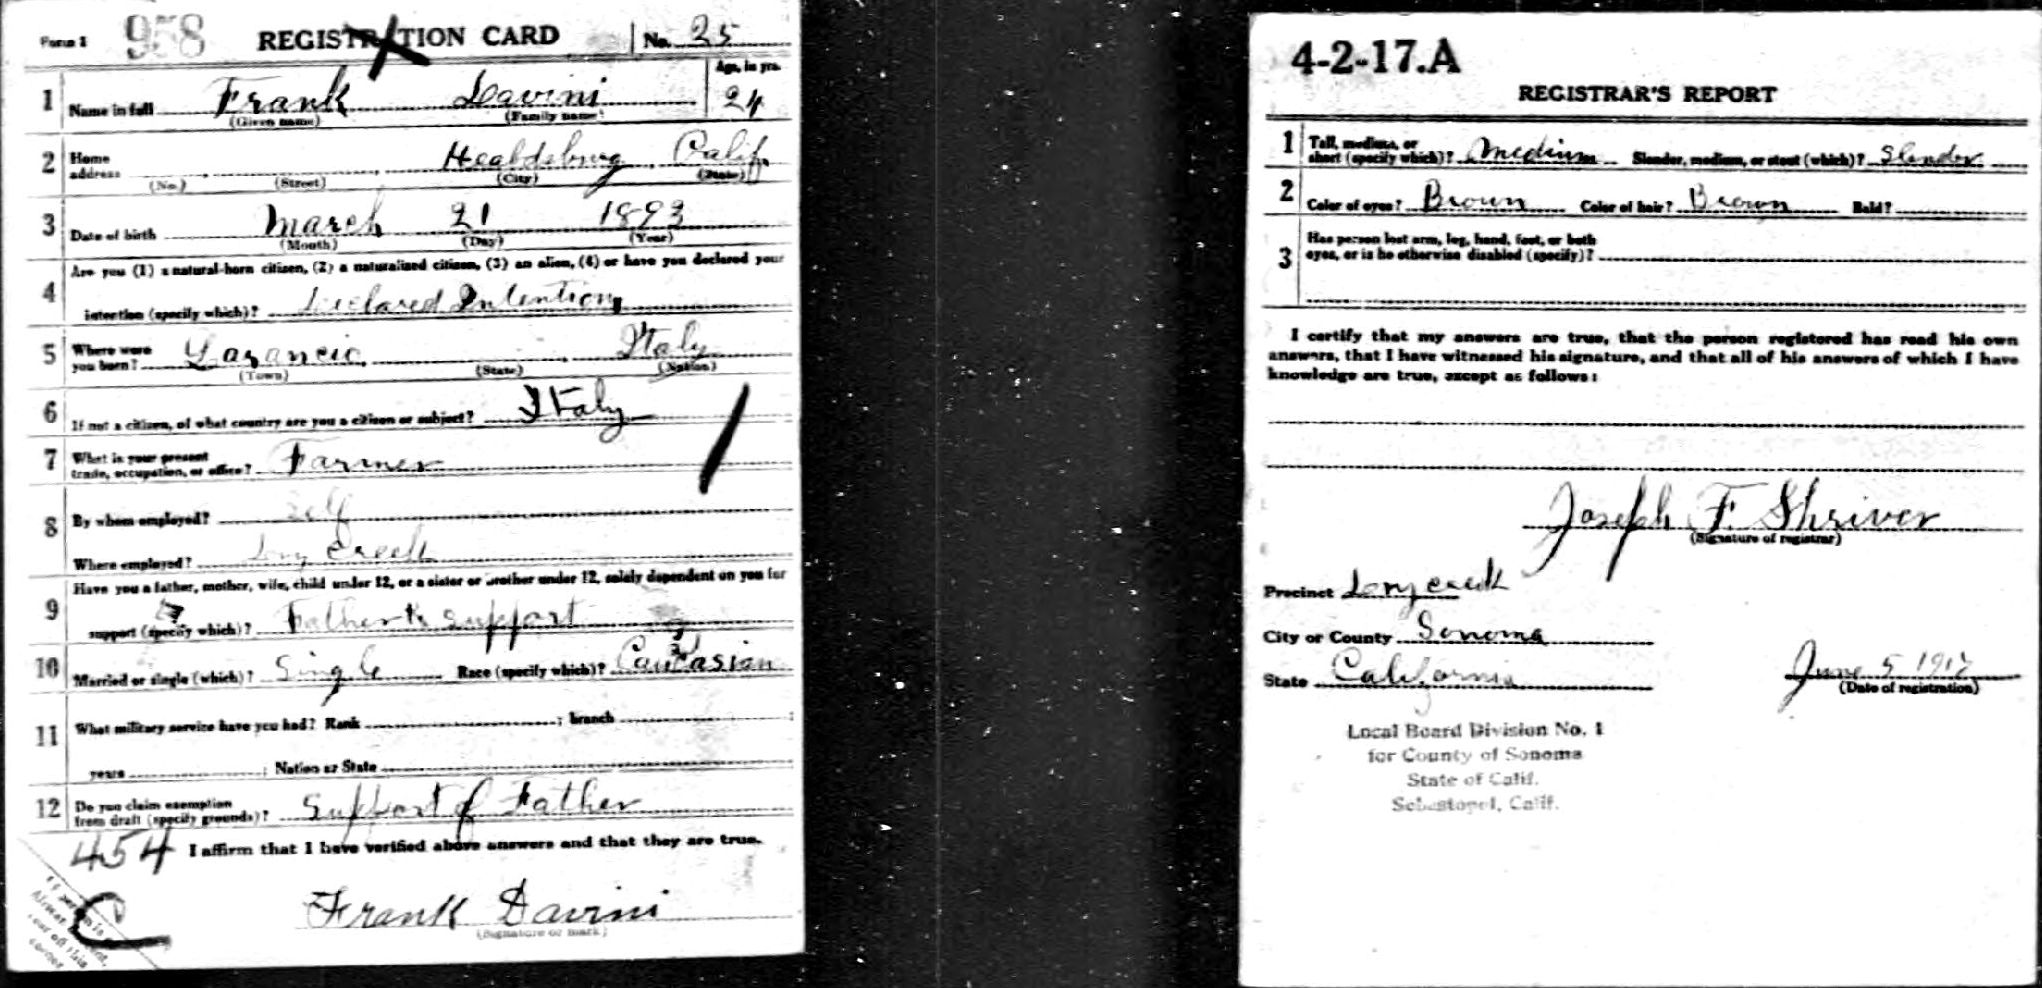 Form 1 958 REGISTRATION CARD No. 25
1 Name in full Frank Davini Age, in yrs. 24
(Given name) (Family name)
2 Home address Healdsburg Calif.
(No.) (Street) (City) (State)
3 Date of birth March 21 1893
(Month) (Day) (Year)
4 Are you (1) a natural-born citizen, (2) a naturalized citizen, (3) an alien, (4) or have you declared your
intention (specify which)? Declared Intention
5 Where were you born? Italy
(Town) (State) (Nation)
6 If not a citizen, of what country are you a citizen or subject? Italy
7 What is your present trade, occupation, or office? Farmer
8 By whom employed? Self
Where employed? Dry Creek
9 Have you a father, mother, wife, child under 12, or a sister or brother under 12, solely dependent on you for
support (specify which)? Father to support
10 Married or single (which)? Single Race (specify which)? Caucasian
11 What military service have you had? Rank ; branch ;
years ; Nation or State
12 Do you claim exemption from draft (specify grounds)? Support of Father
454 I affirm that I have verified above answers and that they are true.
Frank Davini
(Signature or mark)
4-2-17.A
REGISTRAR'S REPORT
1 Tall, medium, or short (specify which)? Medium Slender, medium, or stout (which)? Slender
2 Color of eyes? Brown Color of hair? Brown Bald?
3 Has person lost arm, leg, hand, foot, or both
eyes, or is he otherwise disabled (specify)?
I certify that my answers are true, that the person registered has read his own
answers, that I have witnessed his signature, and that all of his answers of which I have
knowledge are true, except as follows:
Joseph F. Shriver
(Signature of registrar)
Precinct Dry creek
City or County Sonoma
State California June 5 1917
(Date of registration)
Local Board Division No. 1
for County of Sonoma
State of Calif.
Sebastopol, Calif.